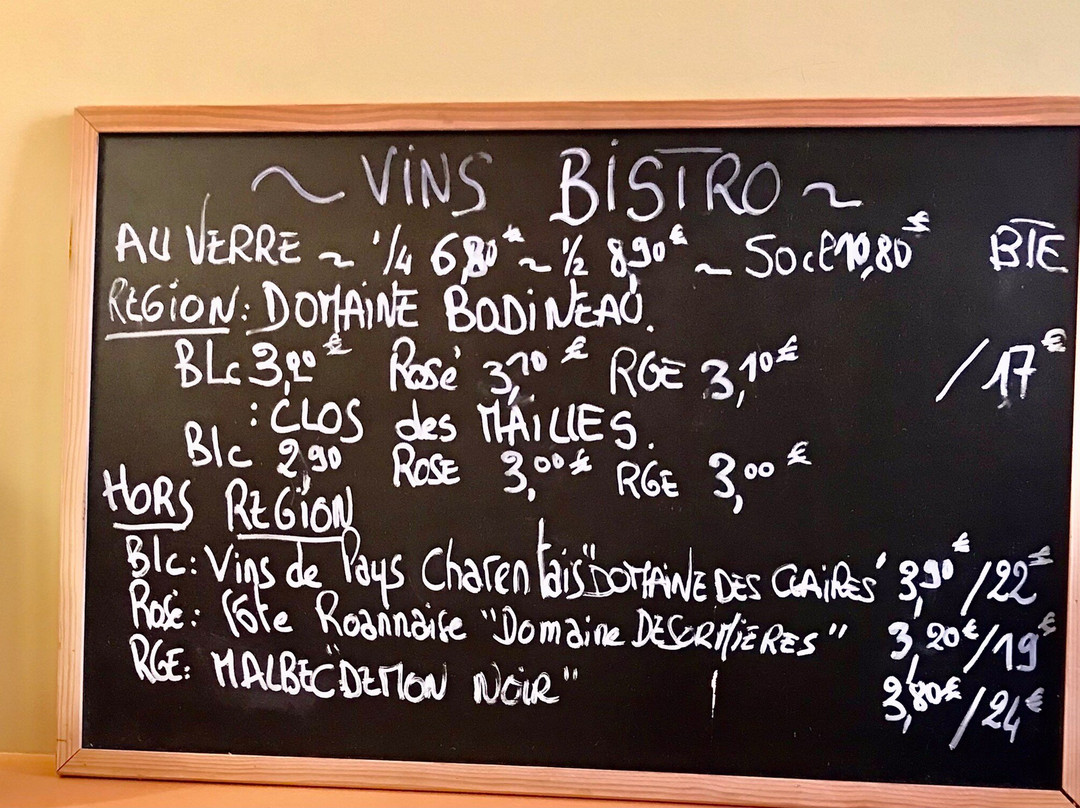 ~ VINS BISTRO ~
AU VERRE ~ 1/4 6,80€ ~ 1/2 8,90€ ~ 50cl 10,80€ BTE
REGION: DOMAINE BODINEAU.
BLc 3,20€ Rosé 3,10€ RGE 3,10€ /17€
: CLOS des MAILLES.
Blc 2,90 ROSE 3,00€ RGE 3,00€
HORS REGION
Blc: Vins de Pays Charentais "DOMAINE DES CLAIRES" 3,90€/22€
Rosé: Côte Roannaise "Domaine DESORMIERES" 3,20€/19€
RGE: MALBEC "DEMON NOIR" 3,80€/24€